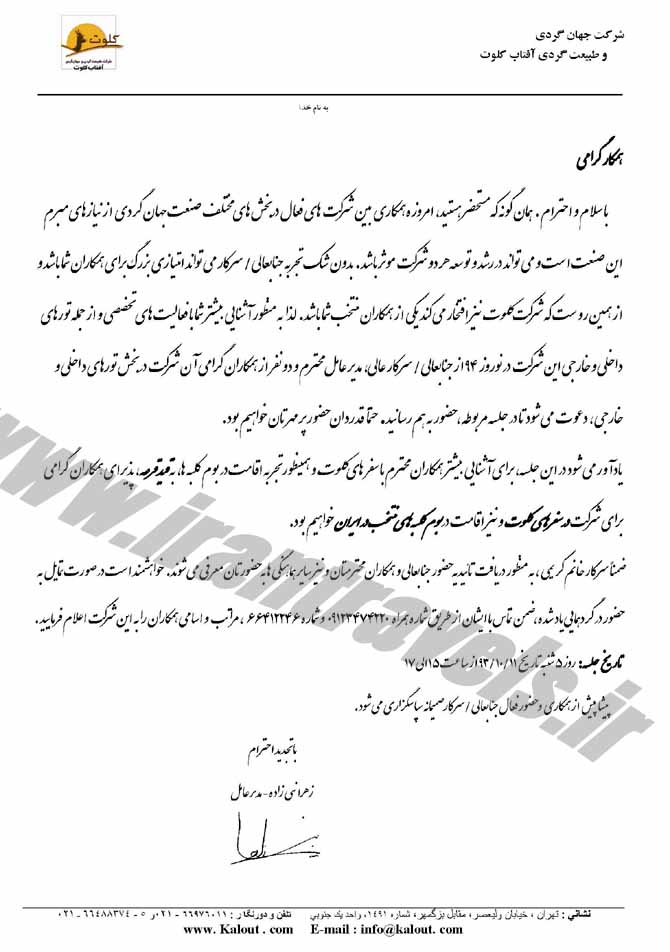 شرکت جهان گردی
و طبیعت گردی آفتاب کلوت
کلوت
شرکت طبیعت گردی و جهانگردی
آفتاب کلوت
به نام خدا
همکار گرامی
با سلام و احترام . همان گونه که مستحضر هستید، امروزه همکاری بین شرکت های فعال در بخش های مختلف صنعت جهان گردی از نیاز های مبرم
این صنعت است و می تواند در رشد و توسعه هر دو شرکت موثر باشد. بدون شک تجربه جنابعالی / سرکار می تواند امتیازی بزرگ برای همکاران شما باشد و
از همین روست که شرکت کلوت نیز افتخار می کند یکی از همکاران منتخب شما باشد. لذا به منظور آشنایی بیشتر شما با فعالیت های تخصصی و از جمله تور های
داخلی و خارجی این شرکت در نوروز ۹۴ از جنابعالی / سرکار عالی، مدیر عامل محترم و دو نفر از همکاران گرامی آن شرکت در بخش تور های داخلی و
خارجی، دعوت می شود تا در جلسه مربوطه، حضور به هم رسانید. حتماً قدردان حضور پر مهرتان خواهیم بود.
یادآور می شود در این جلسه، برای آشنایی بیشتر همکاران محترم با سفر های کلوت و همینطور تجربه اقامت در بوم کلبه ها، به قید قرعه، پذیرای همکاران گرامی
برای شرکت در سفر های کلوت و نیز اقامت در بوم کلبه های منتخب در ایران خواهیم بود.
ضمناً سرکار خانم کریمی، به منظور دریافت تائیدیه حضور جنابعالی و همکاران محترمتان و نیز سایر هماهنگی ها به حضورتان معرفی می شوند. خواهشمند است در صورت تمایل به
حضور در گردهمایی یاد شده، ضمن تماس با ایشان از طریق شماره همراه ۰۹۱۲۳۴۷۴۲۲۰ و شماره ۶۶۴۱۲۲۴۶ ، مراتب و اسامی همکاران را به این شرکت اعلام فرمایید.
تاریخ جلسه: روز ۵ شنبه تاریخ ۹۳/۱۰/۱۱ از ساعت ۱۵ الی ۱۷
پیشاپیش از همکاری و حضور فعال جنابعالی / سرکار صمیمانه سپاسگزاری می شود.
با تجدید احترام
زهرا نبی زاده - مدیر عامل
www.irantravels.ir
نشانی : تهران ، خیابان ولیعصر، مقابل بزرگمهر، شماره ۱۴۹۱، واحد یک جنوبي تلفن و دورنگار : ۶۶۹۷۶۰۱۱ - ۰۲۱ و ۵ - ۶۶۴۸۸۳۷۴ - ۰۲۱
www. Kalout . com E-mail : info@kalout. com